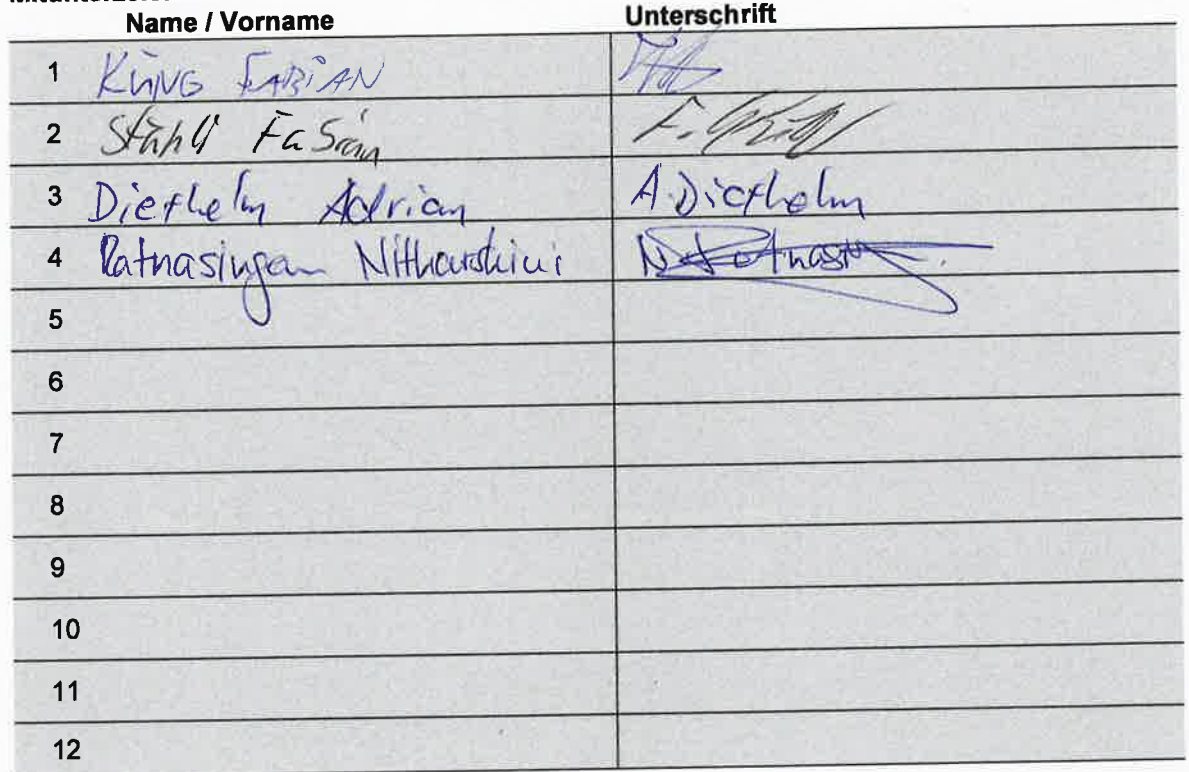 Name / Vorname Unterschrift
1 KÜNG FABIAN
2 Stähli Fabian
3 Diethelm Adrian A. Diethelm
4 Ratnasingam Nitharshini
5
6
7
8
9
10
11
12